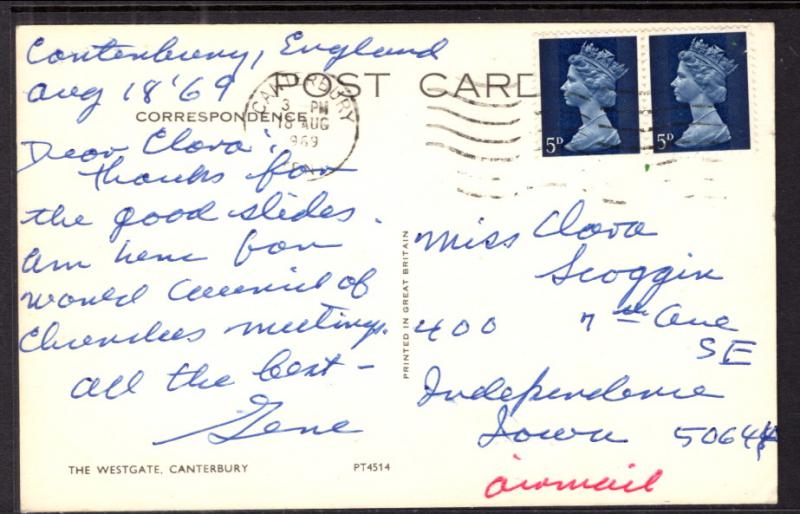 Canterbury, England
Aug 18 '69
POST CARD
CORRESPONDENCE
CANTERBURY
3 PM
18 AUG
1969
5D
5D
Dear Clara:
thanks for
the good slides.
Am here for
World Council of
Churches meetings.
All the best –
Gene
PRINTED IN GREAT BRITAIN
Miss Clara
Scoggin
400 7th Ave
SE
Independence
Iowa 50644
airmail
THE WESTGATE, CANTERBURY
PT4514